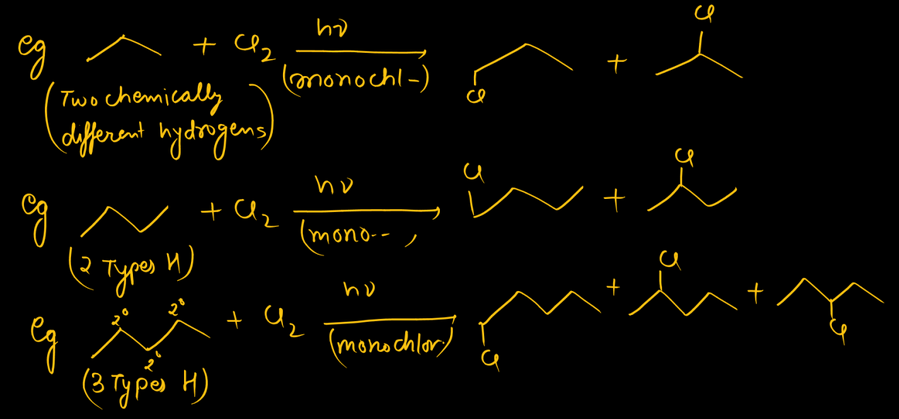 eg + Cl2 hν (monochl-) Cl + Cl
(Two chemically
different hydrogens)
eg + Cl2 hν (mono--, Cl + Cl
(2 Types H)
eg 2° 2° 2° + Cl2 hν (monochlor.) Cl + Cl + Cl
(3 Types H)